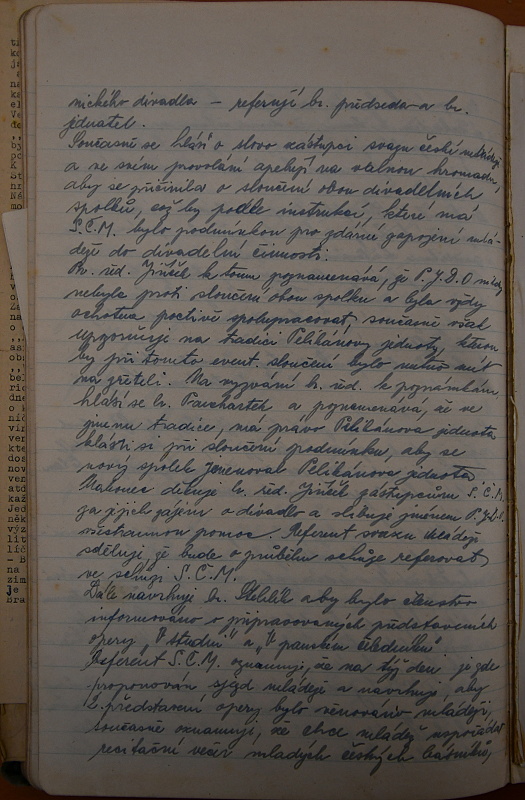 nického divadla – referují br. předseda a br.
jednatel.
Současně se hlásí o slovo zástupci svazu české mládeže
a ve svém provolání apelují na valnou hromadu,
aby se přičinila o sloučení obou divadelních
spolků, což by podle instrukcí, které má
S.Č.M. bylo podmínkou pro zdárné zapojení mlá-
deže do divadelní činnosti.
Br. řed. Jiříček k tomu poznamenává, že P.J.D.O nikdy
nebyla proti sloučení obou spolku a byla vždy
ochotna poctivě spolupracovat, současně však
upozorňuje na tradici Pelikánovy jednoty, kterou
by při tomto event. sloučení bylo nutno mít
na zřeteli. Na vyzvání br. řed. k poznámkám,
hlásí se br. Pauchartek a poznamenává, že ve
jménu tradice, má právo Pelikánova jednota
klásti si při sloučení podmínku, aby se
nový spolek jmenoval Pelikánova jednota.
Nakonec děkuje br. řed. Jiříček zástupcům S.Č.M.
za jejich zájem o divadlo a slibuje jménem P.J.D.O.
všestrannou pomoc. Referent svazu mládeže
sděluje, že bude o průběhu schůze referovat
ve schůzi S.Č.M.
Dále navrhuje br. Stehlík aby bylo členstvo
informováno o připravovaných představeních
opery „V studni" a „V panském čeledníku".
Referent S.Č.M. oznamuje, že na týž den je zde
proponován sjezd mládeže a navrhuje, aby
2. představení opery bylo věnováno mládeži,
současně oznamuje, že chce mládež uspořádat
recitační večer mladých českých básníků,